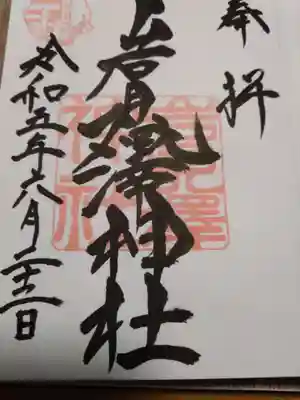 奉拝
岩見澤神社
令和五年六月二十三日